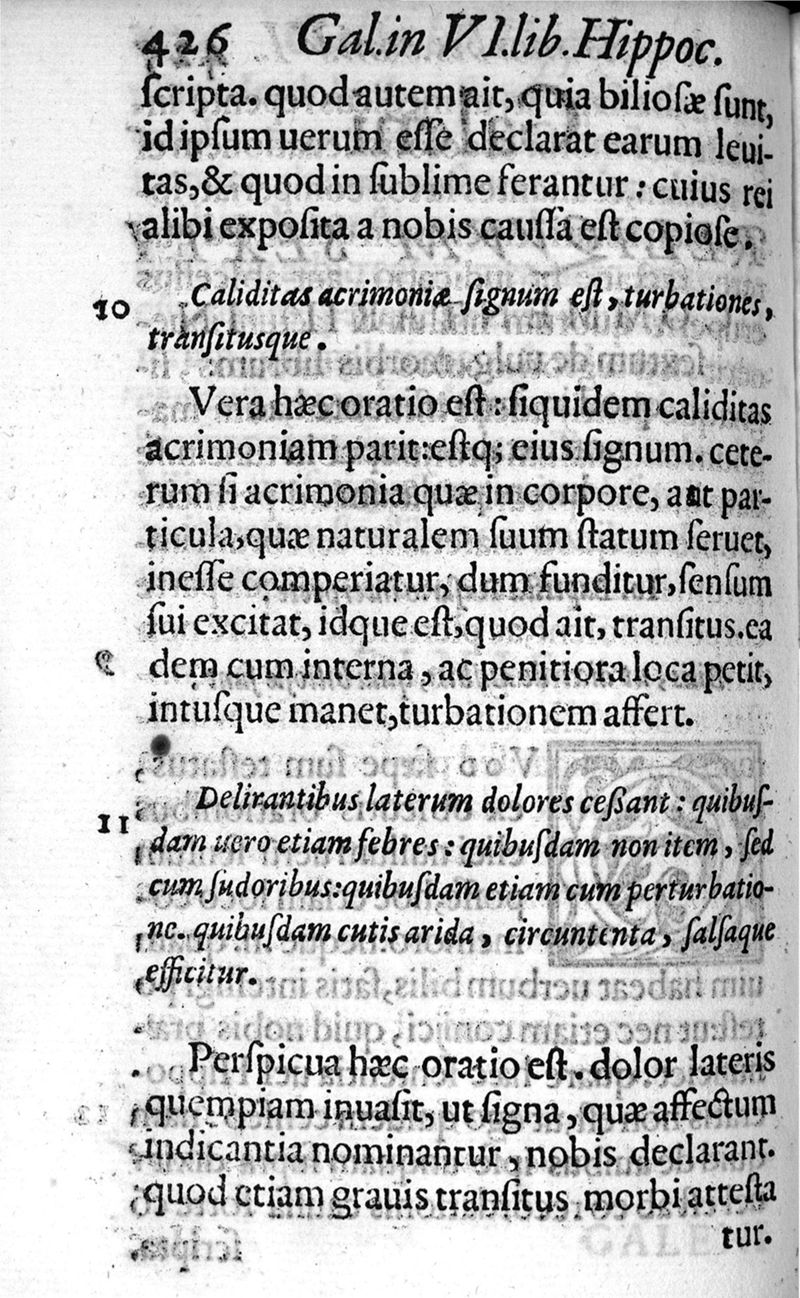 426 Gal.in VI.lib.Hippoc.
ſcripta. quod autem ait, quia bilioſæ ſunt,
id ipſum uerum eſſe declarat earum leui-
tas, & quod in ſublime ferantur : cuius rei
alibi expoſita a nobis cauſſa eſt copioſe.
10 Caliditas acrimoniæ ſignum eſt, turbationes,
tranſitusque.
Vera hæc oratio eſt : ſiquidem caliditas
acrimoniam parit: eſtq; eius ſignum. cete-
rum ſi acrimonia quæ in corpore, aut par-
ticula, quæ naturalem ſuum ſtatum ſeruet,
ineſſe comperiatur, dum funditur, ſenſum
ſui excitat, idque eſt, quod ait, tranſitus. ea
dem cum interna, ac penitiora loca petit,
intuſque manet, turbationem affert.
11 Delirantibus laterum dolores ceßant : quibuſ-
dam uero etiam febres : quibuſdam non item, ſed
cum ſudoribus: quibuſdam etiam cum perturbatio-
ne. quibuſdam cutis arida, circuntenta, ſalſaque
efficitur.
Perſpicua hæc oratio eſt. dolor lateris
quempiam inuaſit, ut ſigna, quæ affectum
indicantia nominantur, nobis declarant.
quod etiam grauis tranſitus morbi atteſta
tur.